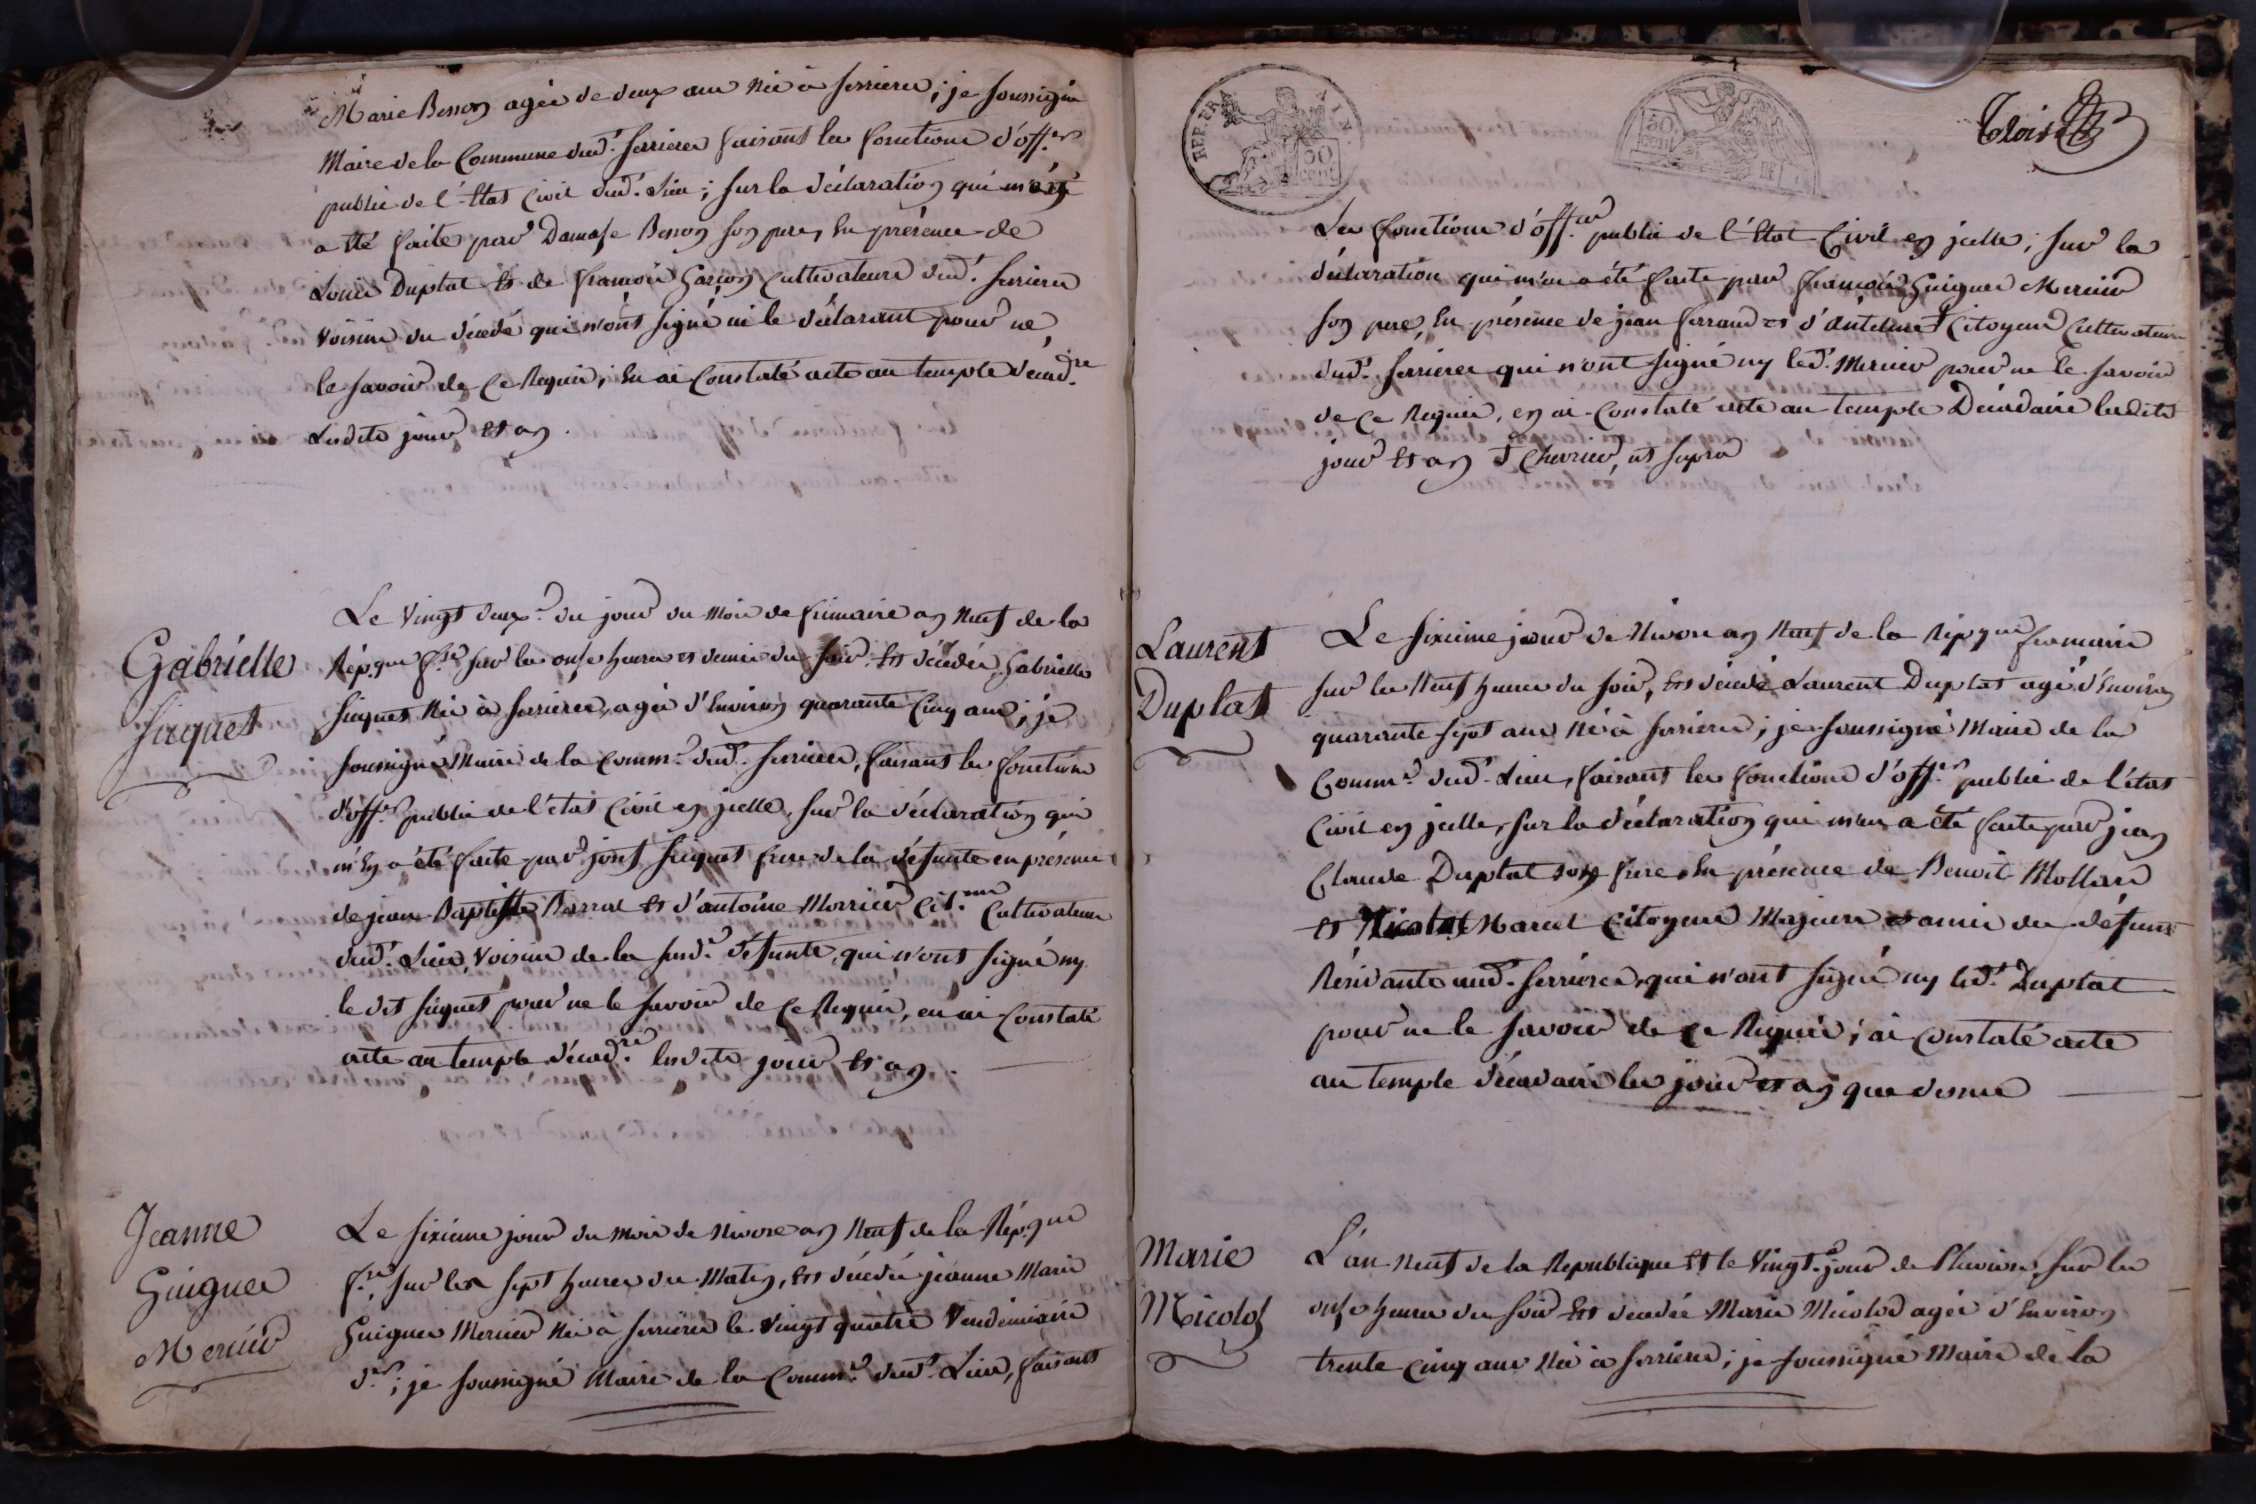 Marie Besson agée de deux ans née à serrieres ; je soussigné
Maire de la Commune dud.t serrieres faisant les fonctions d'off.er
public de l'état Civil dud.t Lieu ; sur la déclaration qui m'
a été faite par Damase Besson son pere, en présence de
Louis Duplat et de françois Garçon Cultivateurs dud.t serrieres
voisins du décédé qui n'ont signé ni le déclarant pour ne
le savoir de ce Requis ; en ai Constaté acte au temple décad.re
Lesdits jour et an .
Gabrielle
suquet
Le vingt deux.e du jour du mois de frimaire an neuf de la
Rép.que f.se sur les onse heures et demie du soir, est décédée Gabrielle
suquet née à serrieres, agée d'environ quarante cinq ans ; je
soussigné Maire de la Comm.e dud.t serrieres, faisant les fonctions
d'off.er public de l'état Civil en jcelle, sur la déclaration qui
m'en a été faite par josef suquet frere de la défunte en présence
de jean Baptiste Barral et d'antoine Morrier Cit.ens Cultivateurs
dud.t Lieu, voisins de la sud.e défunte, qui n'ont signé ny
le dit suquet pour ne le savoir de ce Requis, en ai Constaté
acte au temple décad.re lesdits jour et an .
Jeanne
Guigues
Mercier
Le sixieme jour du mois de Nivose an neuf de la Rép.que
f.se, sur les sept heures du Matin, est décédée jeanne Marie
Guigues Mercier née à serrieres le vingt quatre vendémiaire
d.er ; je soussigné Maire de la Comm.e dud.t Lieu, faisant
REP. FRA.
50
cent
50
cent
trois
Les fonctions d'off.er public de l'état Civil en jcelle, sur la
déclaration qui m'en a été faite par françois Guigues Mercier
son pere, en présence de jean ferrand et d'antelme Citoyens Cultivateurs
dud.t serrieres qui n'ont signé ny led.t Mercier pour ne le savoir
de ce Requis, en ai Constaté acte au temple Décadaire lesdits
jour et an Chevrier, ut supra
Laurent
Duplat
Le sixieme jour de Nivose an neuf de la Rép.que francaise
sur les neuf heures du soir, est décédé Laurent Duplat agé d'environ
quarante sept ans né à serrieres ; je soussigné Maire de la
Comm.e dud.t Lieu, faisant les fonctions d'off.er public de l'état
Civil en jcelle, sur la déclaration qui m'en a été faite par jean
Claude Duplat son frere en présence de Benoit Mollard
et Nicolas Marcel Citoyens Majeurs et amis du défunt
Résidants aud.t serrieres, qui n'ont signé ny led.t Duplat
pour ne le savoir de ce Requis ; ai Constaté acte
au temple décadaire les jour et an que dessus
Marie
Micolod
L'an neuf de la Republique et le vingt.e jour de Pluviose, sur les
onse heures du soir est décédée Marie Micolod agée d'environ
trente cinq ans née à serrieres ; je soussigné Maire de la